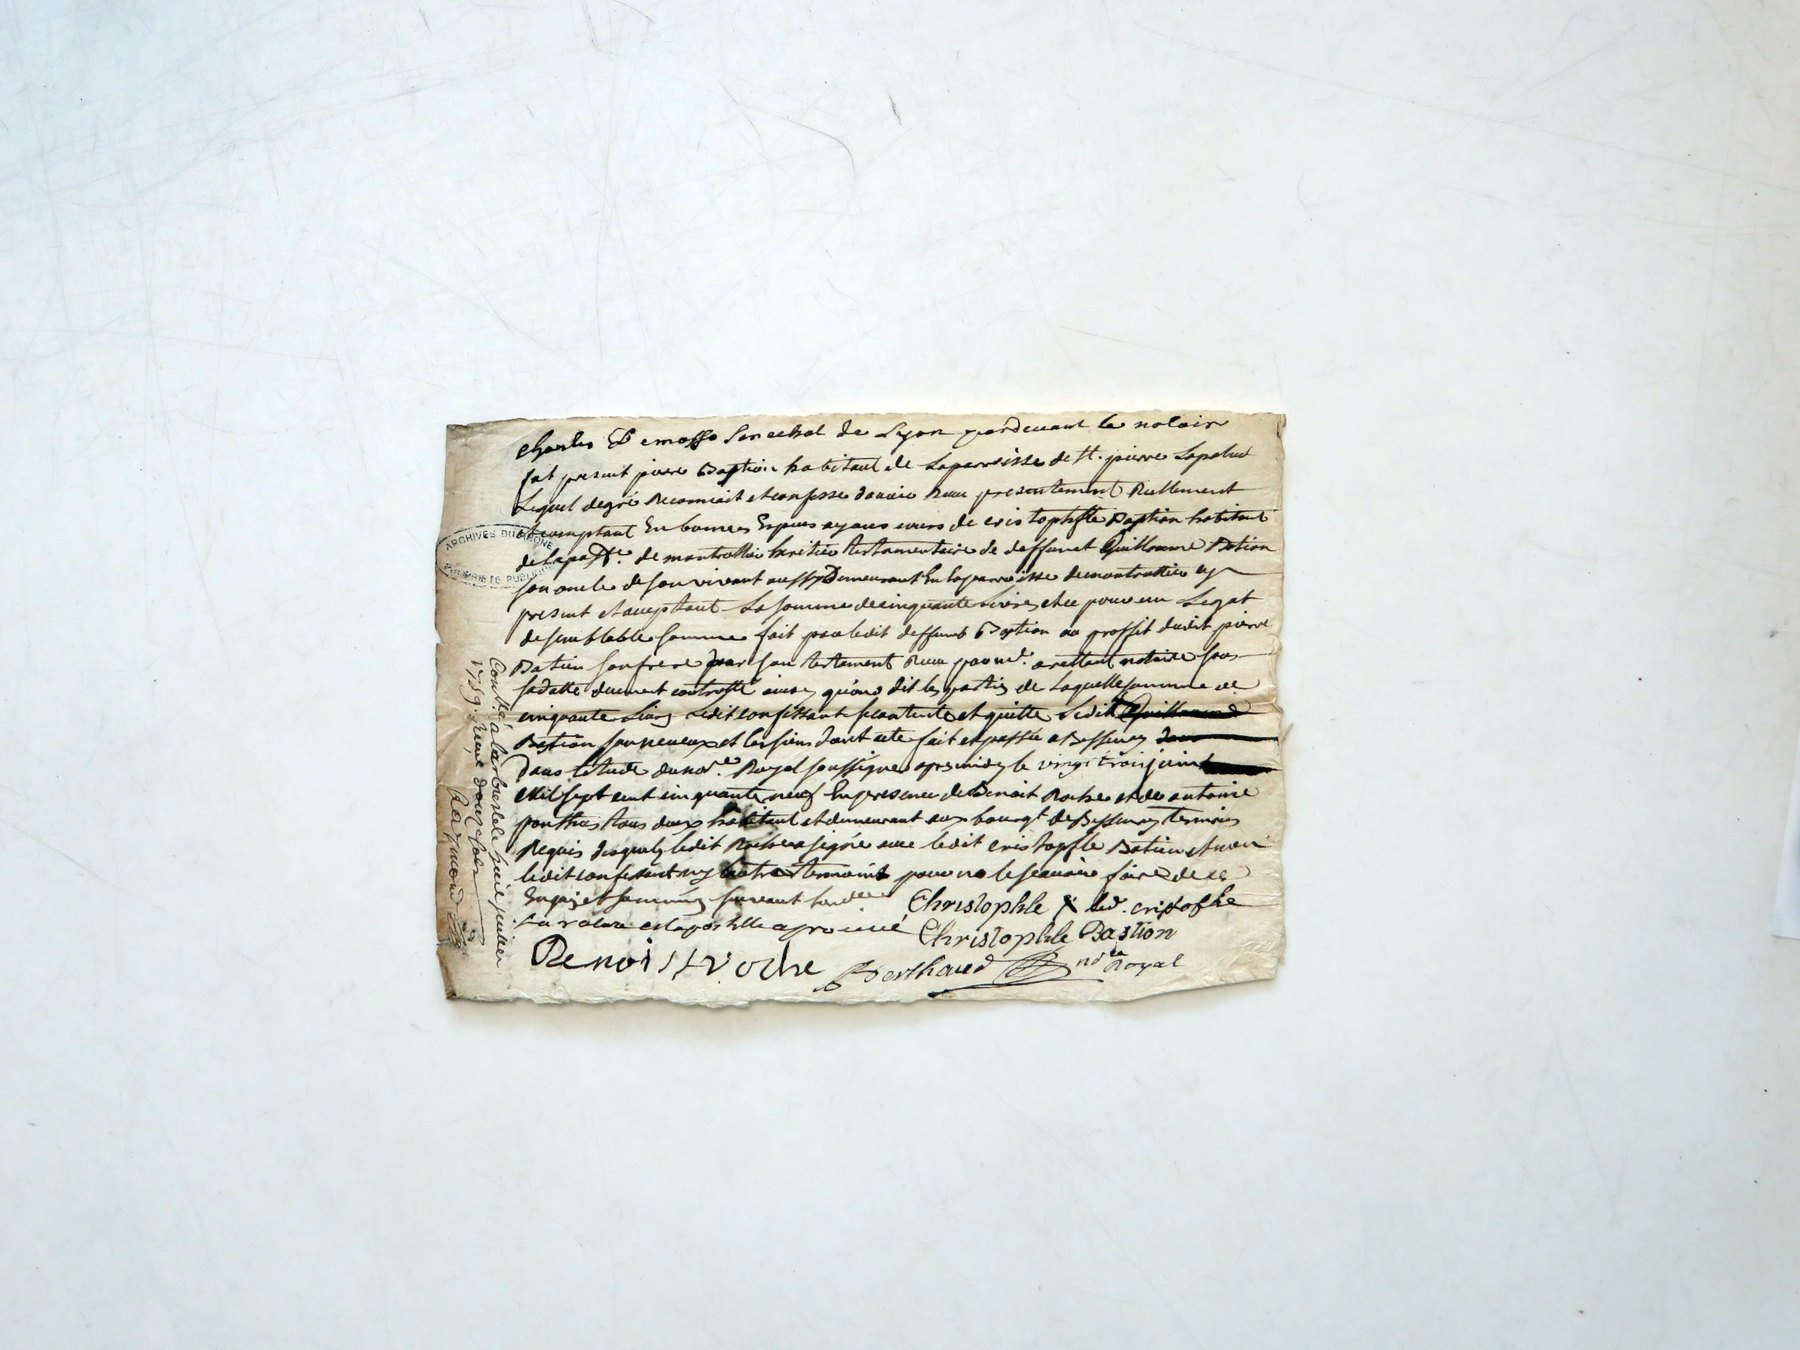 Charles Demasso senechal de Lyon pardevant le notaire
fut present pierre Bastion habitant de La parroisse de St. pierre Lapalud
Lequel de gré Reconnoit et confesse d'avoir Reçu presentement Reellement
et comptant En bonnes Espèces ayans cours de cristophle Bastion habitant
de La pa.sse de montrottier heritier testamentaire de deffunct Guillaume Bation
son oncle de son vivant aussy Demeurant En la parroisse de montrottier icy
present et acceptant La somme de cinquante Livres et ce pour un Legat
de semblable somme fait par ledit deffunct Bastion au proffit dudit pierre
Bation son frere par son testament Recu par me. notaire sous
sa datte duement controllé ainsy qu'ons dit les parties de Laquelle somme de
cinquante Livres ledit confessant se contente et quitte Ledit Guillaume
Bastion son neveux et les siens dont acte fait et passée a Bessenay
dans letude du not.re Royal soussigné apres midy le vingt trois juin
Mil sept cent cinquante neuf En presence de Benoit Roche et de antoine
ponthus tous deux habitant et demeurant aux bourgt de Bessenay temoins
Requis desquels ledit Roche a signé avec ledit cristophle Bation et non
ledit confessant ny lautre temoint pour ne le scavoir faire de ce
Enquis et sommés suivant
La rature et apostille aprouvé Christophle X led. cristophe
Christophle Bastion
Benoist roche Berthaud no.re Royal
Conllé a la bresle le huit juillet
1759. Reçu douze sols
Raymond
ARCHIVES DU RHONE
PROPRIETE PUBLIQUE